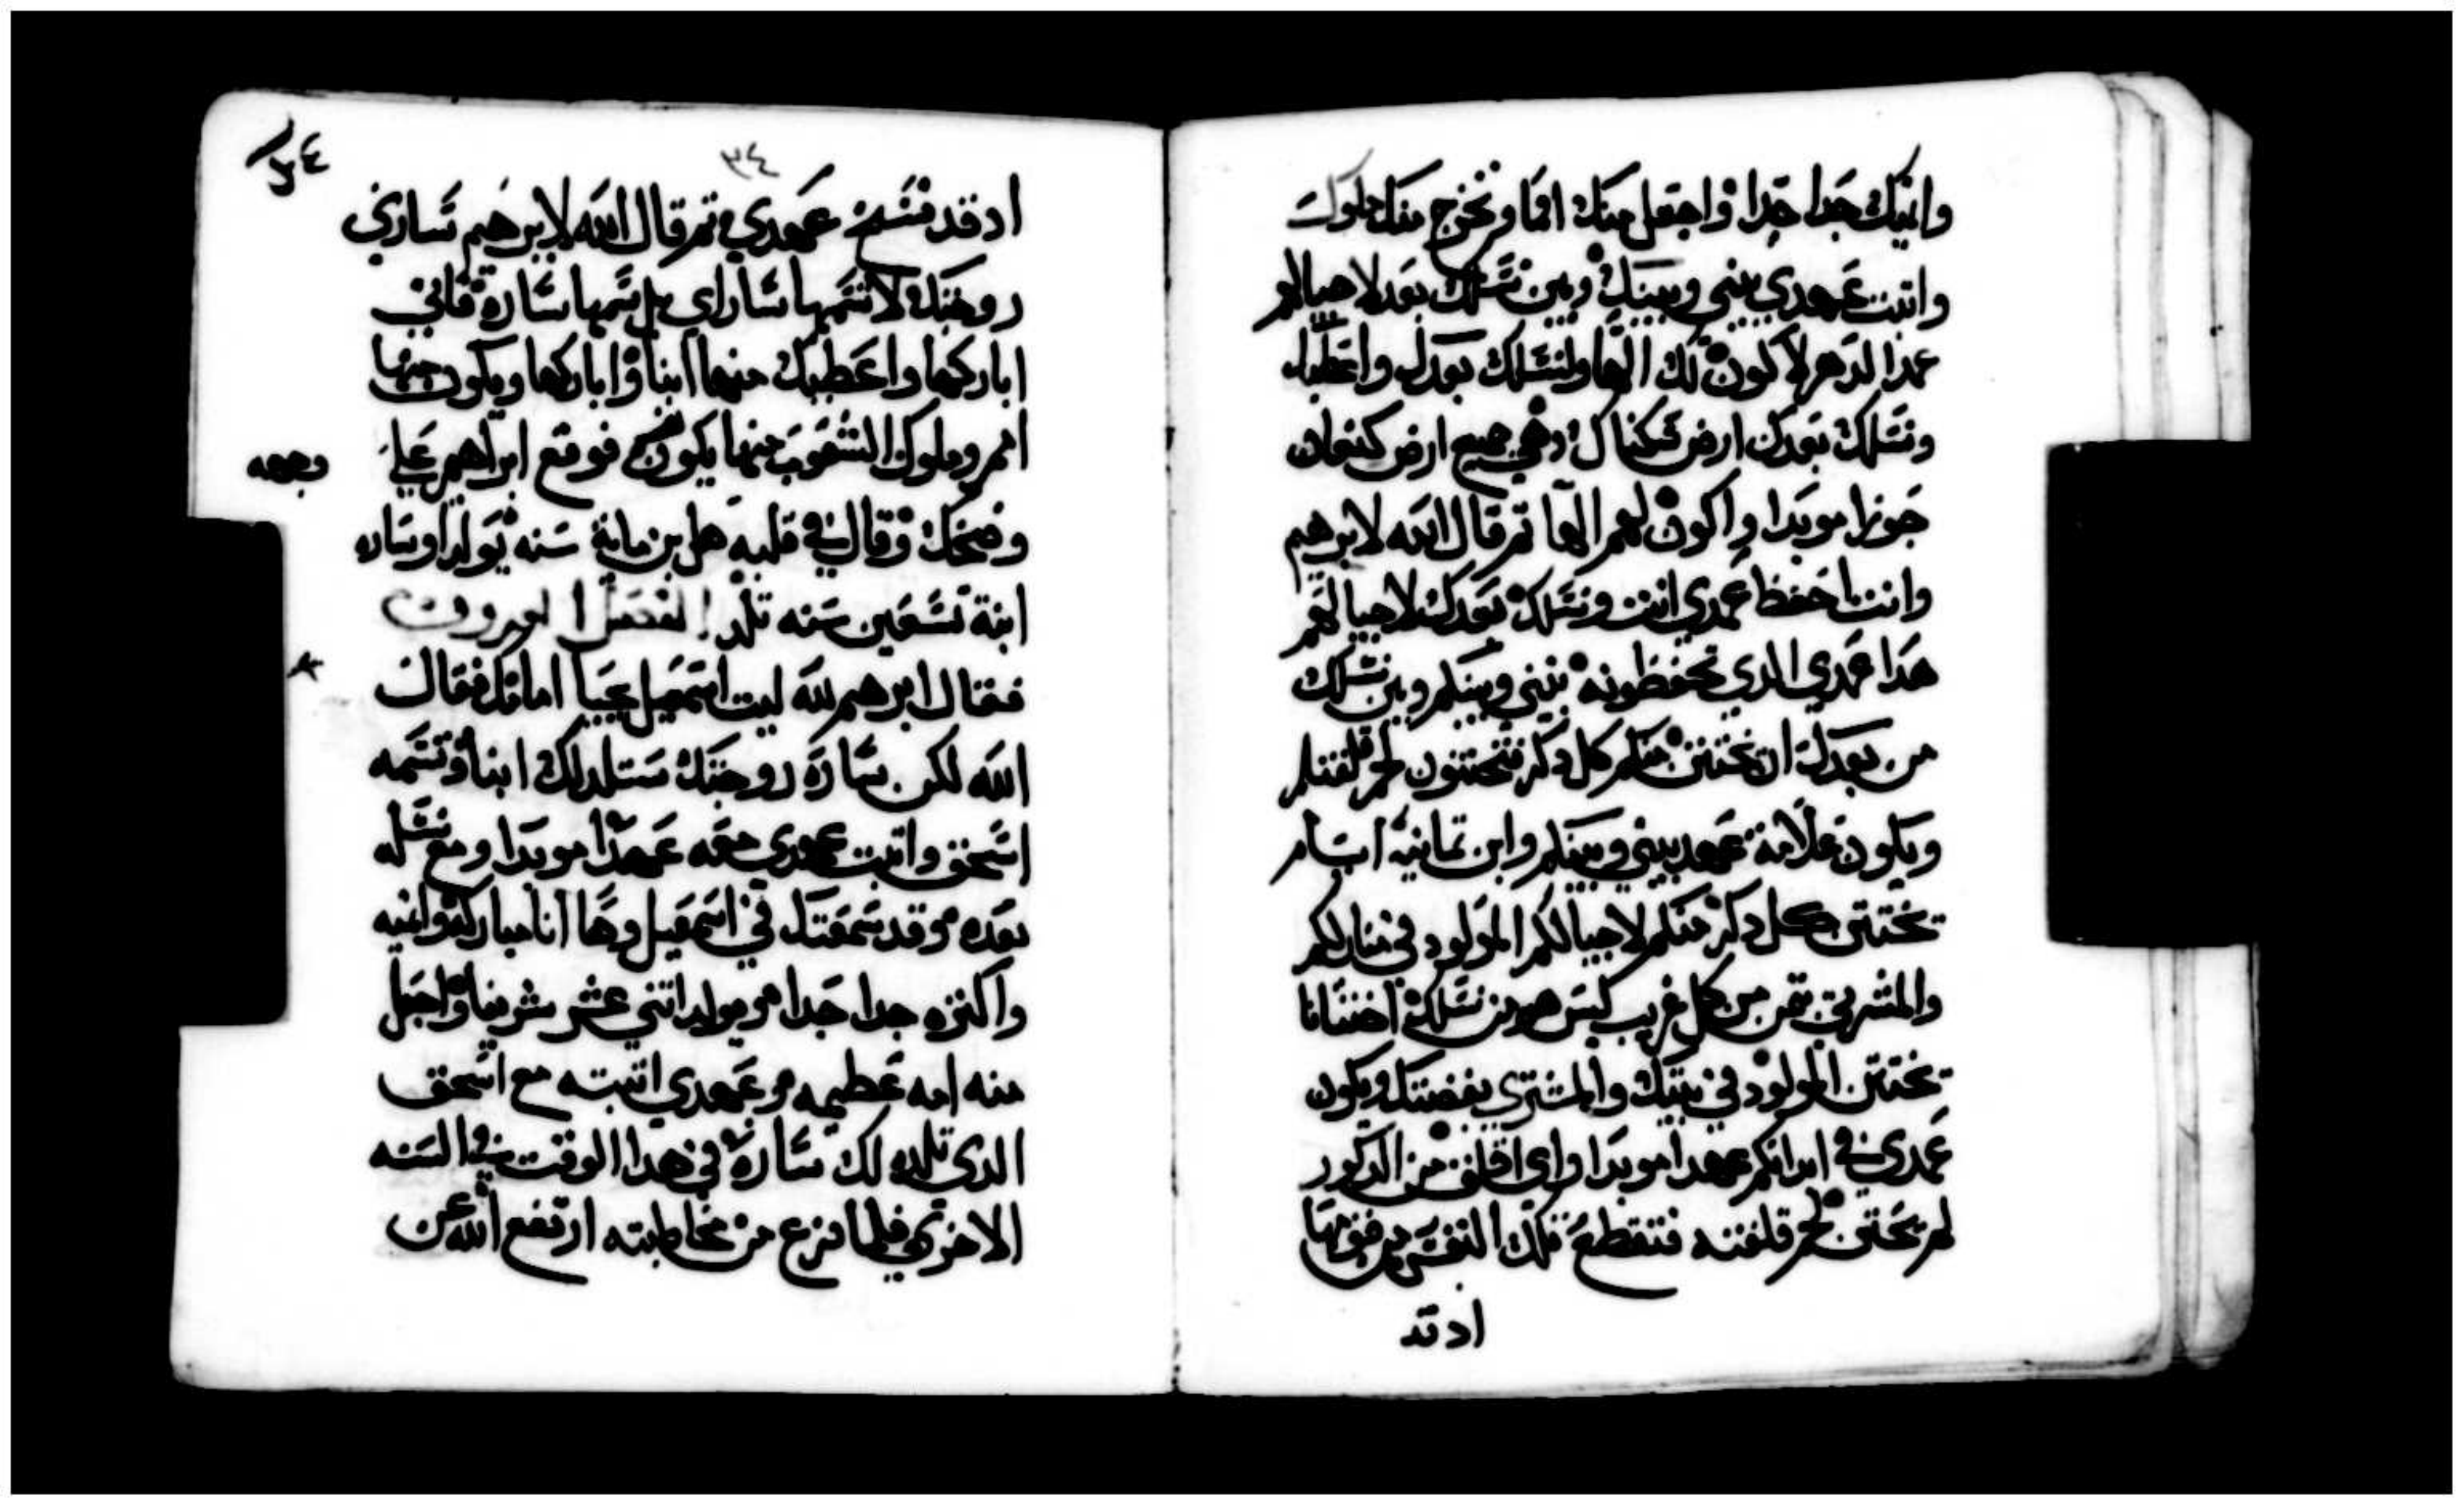 وانميك جدا جدا واجعل منك امما وتخرج منك ملوك
واتبت عهدي بيني وبينك وبين نسلك بعدك لاجيالهم
عهدا لدهر لاكون لك الها ولنسلك بعدك واعطيك
ونسلك بعدك ارض سكناك وهي جميع ارض كنعان
حوزا موبدا واكون لهم الها تم قال الله لابرهيم
وانت احفظ عهدي انت ونسلك بعدك لاجيالهم
هدا عهدي الدي تحفظونه بيني وبينكم وبين نسلك
من بعدك ان يختتن منكم كل دكر فتختنون لحم قلفتكم
ويكون علامة عهد بيني وبينكم وابن تمانية ايام
يختتن كل دكر منكم لاجيالكم المولود في منازلكم
والمشترى بتمن من كل غريب ليس هو من نسلك اختتانا
يختتن المولود في بيتك والمشتري بفضتك ويكون
عهدي في ابدانكم عهدا موبدا واي اقلف من الدكور
لم يختتن لحم قلفته فتنقطع تلك النفس من قومها
اد قد
٣٤
٣٤
اد قد فسخ عهدي تم قال الله لابرهيم ساراي
زوجتك لا تسمها ساراي بل سمها سارة فاني
اباركها واعطيك منها ابنا واباركها ويكون منها
امم وملوك الشعوب منها يكون فوقع ابراهيم علي
وجهه
وضحك وقال في قلبه هل بن ماية سنه يولد او ساره
ابنة تسعين سنه تلد
فقال ابرهيم لله ليت اسمعيل يحيا امامك فقال
الله لكن سارة زوجتك ستلد لك ابنا وتسمه
اسحق واتبت عهدي معه عهدا موبدا ومع نسله
بعده وقد سمعتك في اسمعيل وها انا مباركه وانميه
واكتره جدا جدا ويولد اتني عشر شريفا واجعل
منه امه عظيمه وعهدي اتبته مع اسحق
الدي تلده لك سارة في هدا الوقت في السنه
الاخري فلما فرغ من مخاطبته ارتفع الله عن